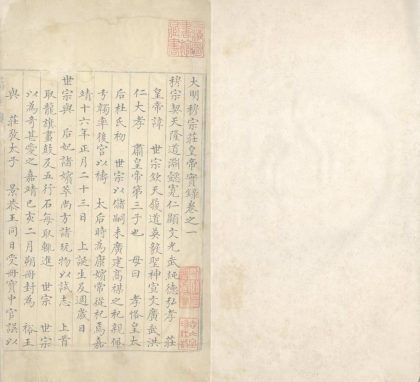 大明穆宗莊皇帝實錄卷之一
穆宗契天隆道淵懿寬仁顯文光武純德弘孝 莊
皇帝諱 世宗欽天履道英毅聖神宣文廣武洪
仁大孝 肅皇帝第三子也 母曰 孝恪皇太
后杜氏初 世宗以儲嗣未廣建高禖之祀親佩
弓韣率後宮以禱 太后時為康嬪常從祀焉嘉
靖十六年正月二十三日 上誕生及週歲日
世宗與 后妃諸嬪萃尚方諸玩物以試志 上首
取龍旗畫鼓及五行石每取輒進 世宗 世宗
以為奇甚愛之嘉靖己亥二月朔冊封為 裕王
與 莊敬太子 景恭王同日受冊寶中官誤以